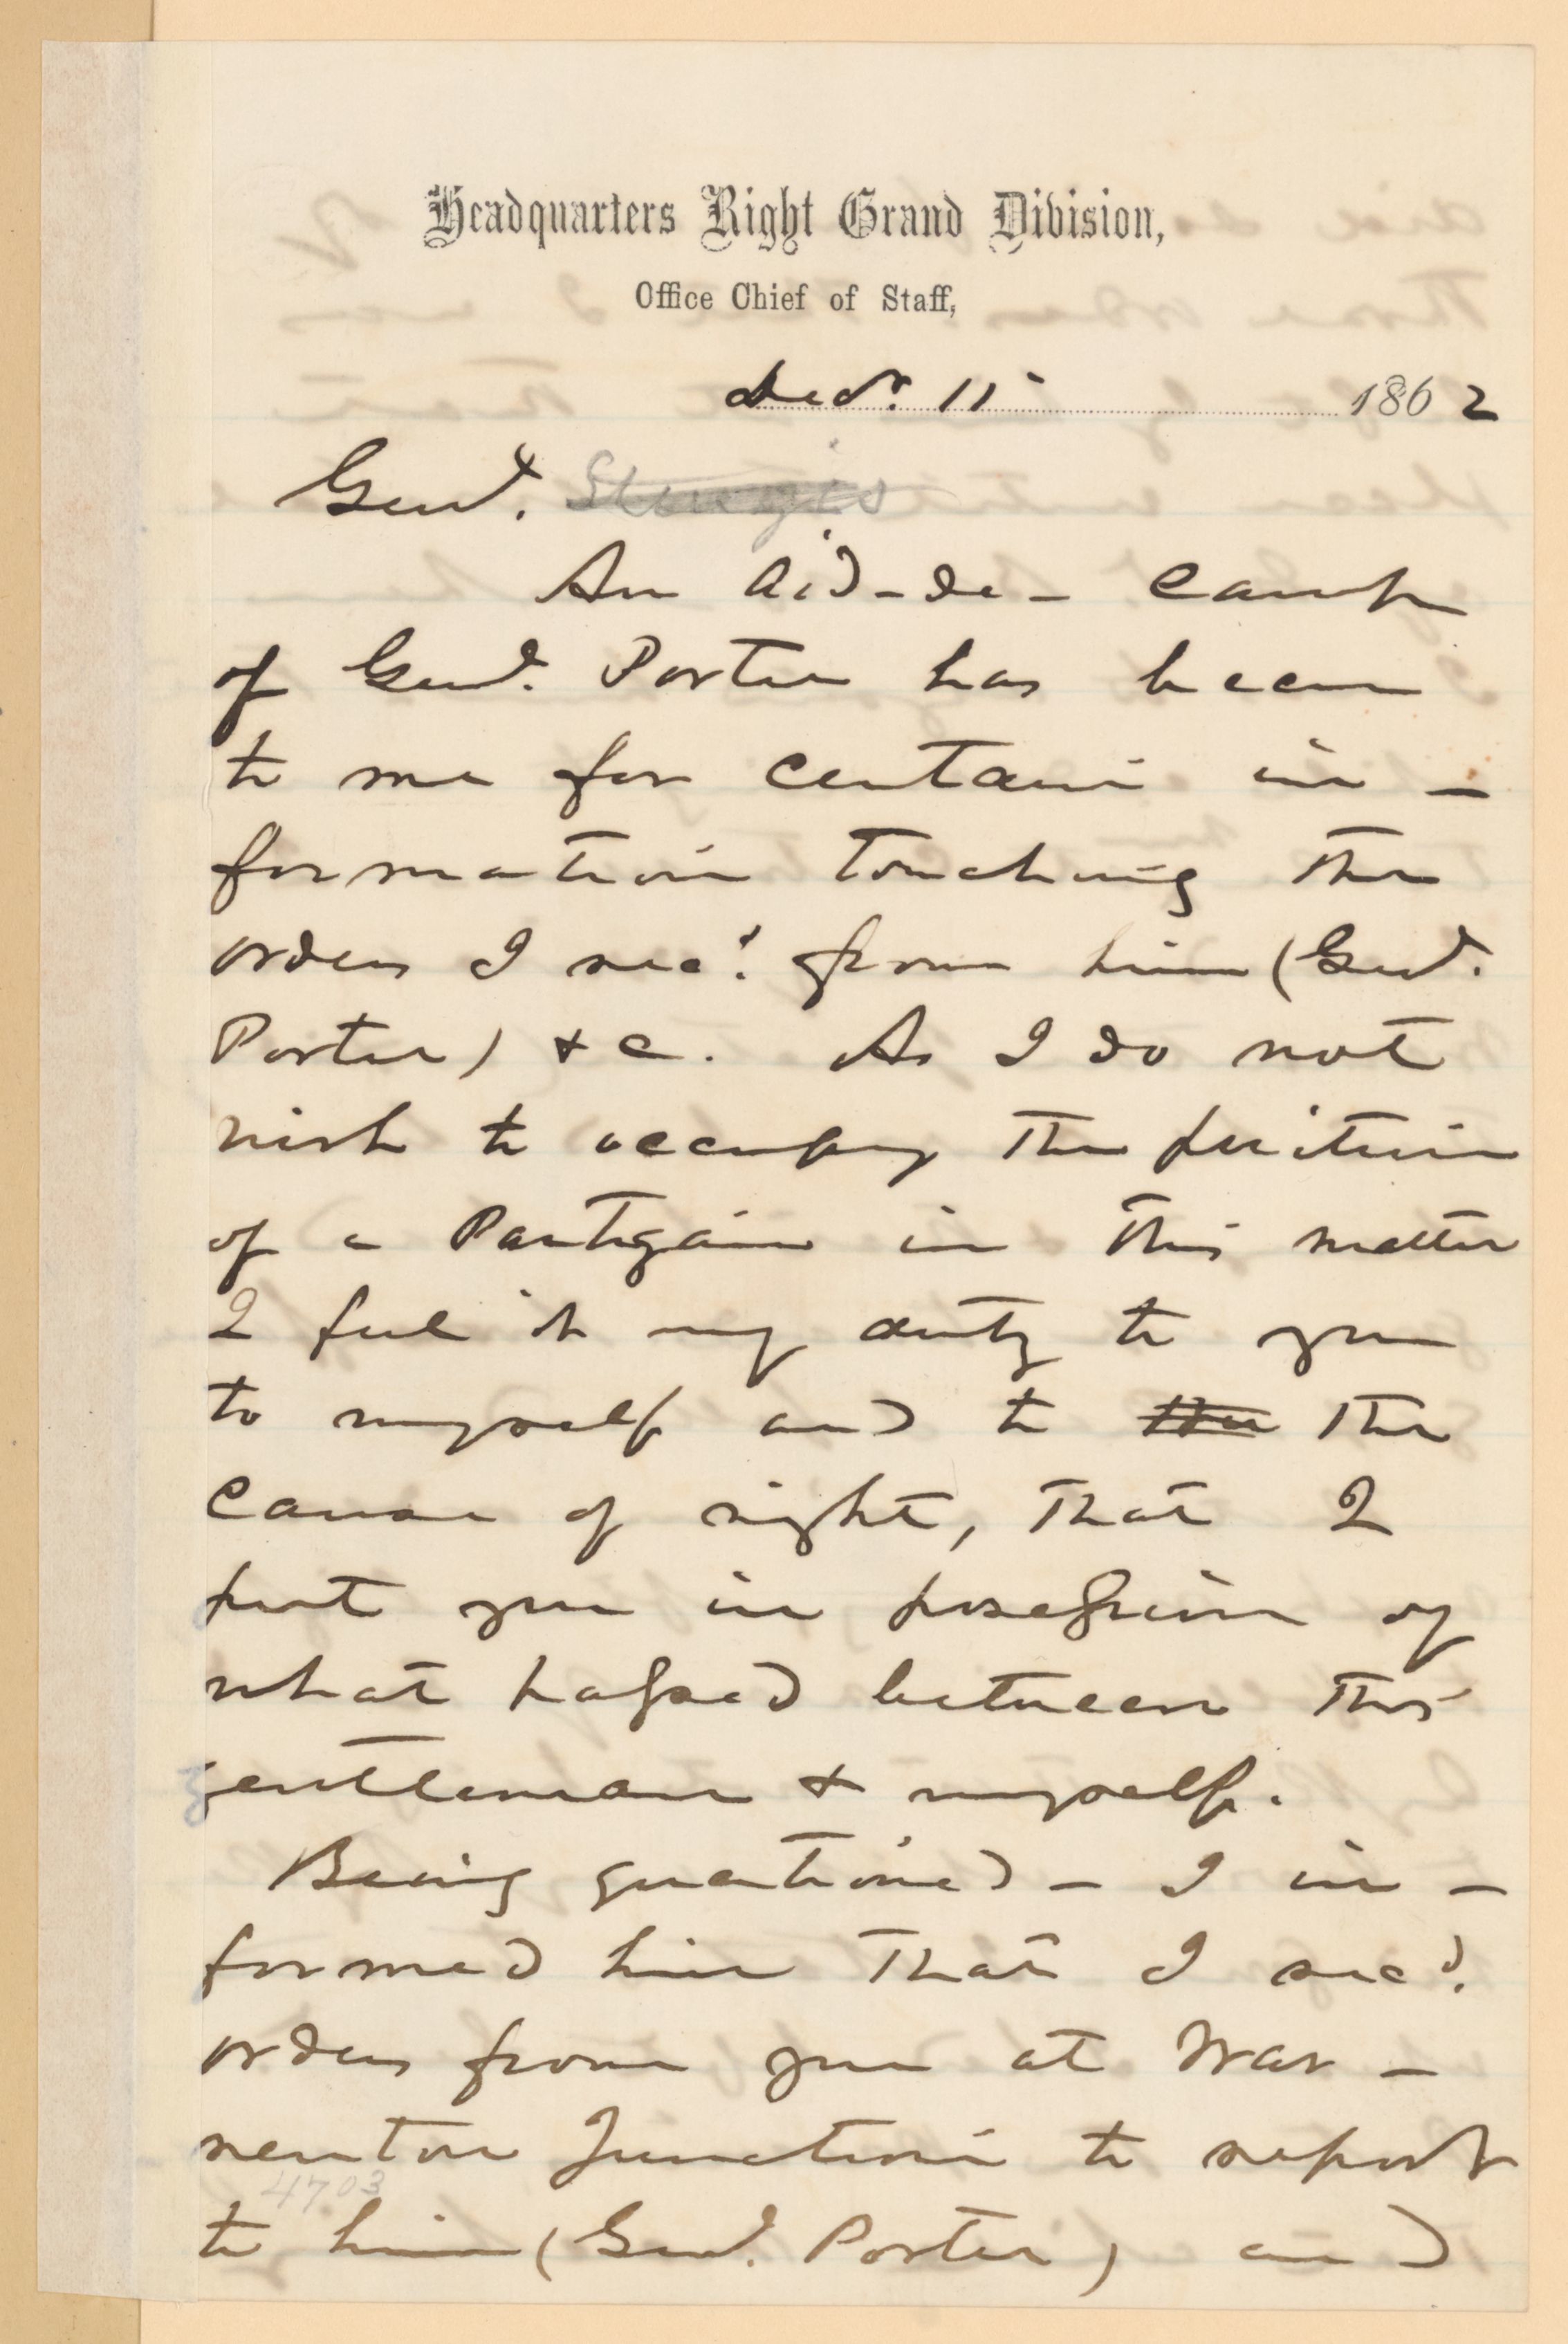 Headquarters Right Grand Division,
Office Chief of Staff,
Decr. 11 1862
Genl. Sturgis
An Aid-de-camp
of Genl. Porter has been
to me for certain in-
formation touching the
orders I recd. from him (Genl.
Porter) &c. As I do not
wish to occupy the position
of a Partizain in this matter
I feel it my duty to you
to myself and to the the
cause of right, that I
put you in possession of
what passed between this
gentleman & myself.
Being questioned - I in-
formed him that I recd.
orders from you at War-
renton Junction to report
to him (Genl. Porter) and
4703